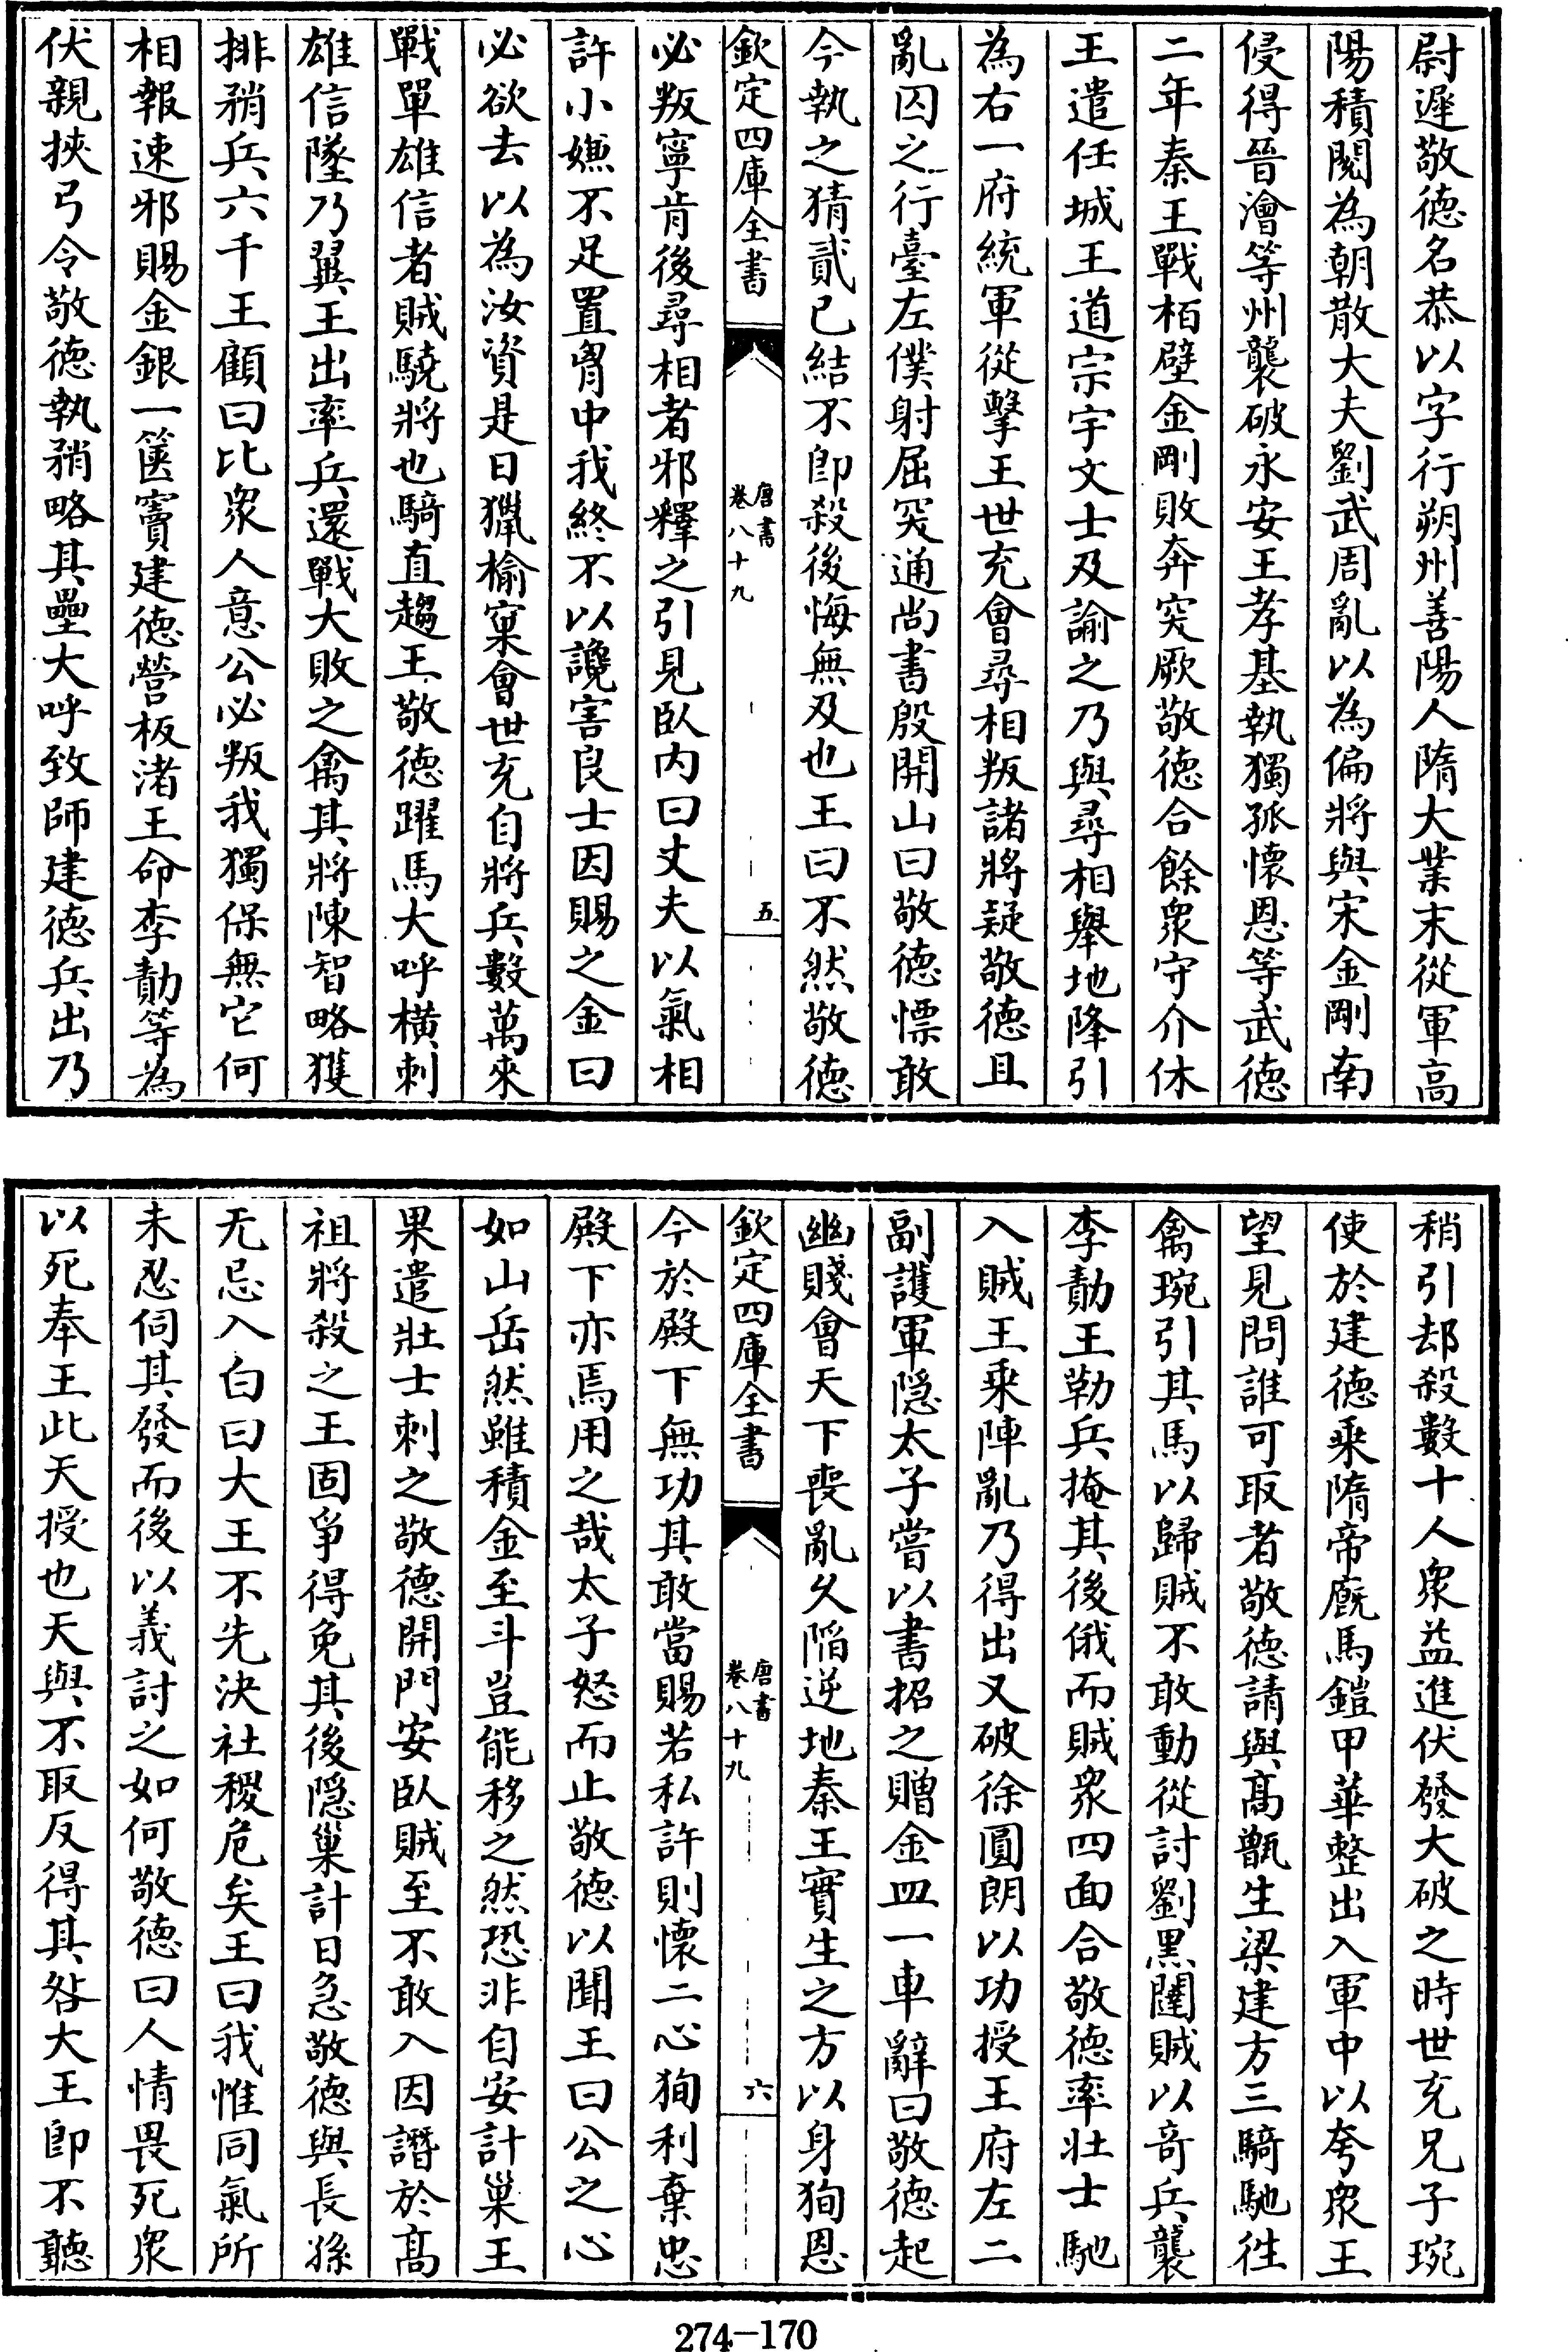 尉遲敬德名恭以字行朔州善陽人隋大業末從軍高
陽積閱為朝散大夫劉武周亂以為偏將與宋金剛南
侵得晉澮等州襲破永安王孝基執獨孤懷恩等武德
二年秦王戰栢壁金剛敗奔突厥敬德合餘衆守介休
王遣任城王道宗宇文士及諭之乃與尋相舉地降引
為右一府統軍從擊王世充會尋相叛諸將疑敬德且
亂囚之行臺左僕射屈突通尚書殷開山曰敬德慓敢
今執之猜貳已結不即殺後悔無及也王曰不然敬德
欽定四庫全書
唐書
卷八十九
五
必叛寧肯後尋相者邪釋之引見臥内曰丈夫以氣相
許小嫌不足置胷中我終不以讒害良士因賜之金曰
必欲去以為汝資是日獵榆窠會世充自將兵數萬來
戰單雄信者賊驍將也騎直趨王敬德躍馬大呼橫刺
雄信墜乃翼王出率兵還戰大敗之禽其將陳智略獲
排矟兵六千王顧曰比衆人意公必叛我獨保無它何
相報速邪賜金銀一篋竇建德營板渚王命李勣等為
伏親挾弓令敬德執矟略其壘大呼致師建德兵出乃
稍引却殺數十人衆益進伏發大破之時世充兄子琬
使於建德乘隋帝廐馬鎧甲華整出入軍中以夸衆王
望見問誰可取者敬德請與髙甑生梁建方三騎馳往
禽琬引其馬以歸賊不敢動從討劉黑闥賊以竒兵襲
李勣王勒兵掩其後俄而賊衆四面合敬德率壯士馳
入賊王乘陣亂乃得出又破徐圓朗以功授王府左二
副護軍隠太子嘗以書招之贈金皿一車辭曰敬德起
幽賤會天下喪亂久陷逆地秦王實生之方以身狥恩
欽定四庫全書
唐書
卷八十九
六
今於殿下無功其敢當賜若私許則懷二心狥利棄忠
殿下亦焉用之哉太子怒而止敬德以聞王曰公之心
如山岳然雖積金至斗豈能移之然恐非自安計巢王
果遣壯士刺之敬德開門安臥賊至不敢入因譖於髙
祖將殺之王固爭得免其後隠巢計日急敬德與長孫
无忌入白曰大王不先決社稷危矣王曰我惟同氣所
未忍伺其發而後以義討之如何敬德曰人情畏死衆
以死奉王此天授也天與不取反得其咎大王即不聽
274-170